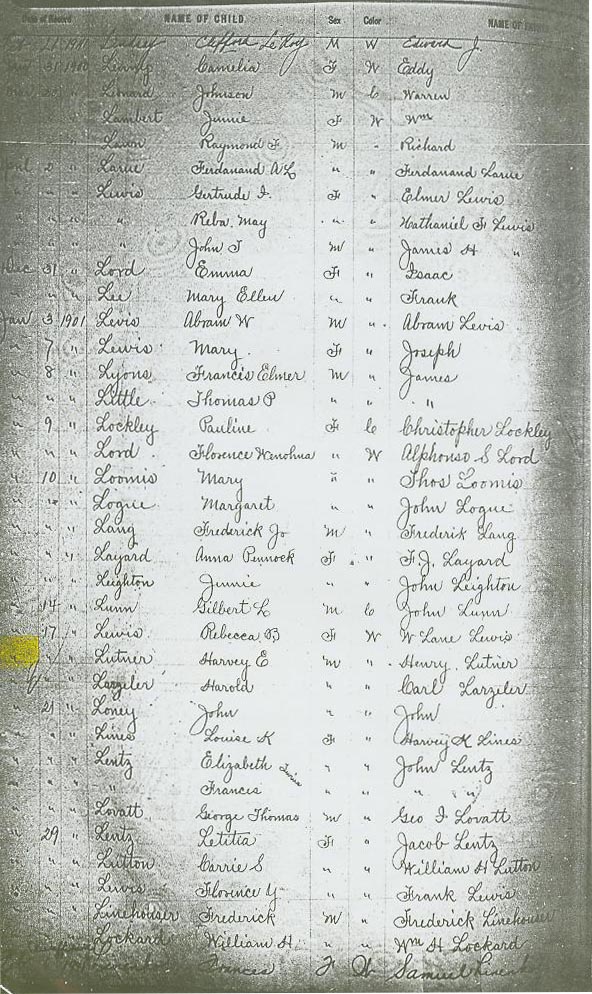 Date of Record NAME OF CHILD Sex Color NAME OF
Clifford LeRoy M W Edward J.
31 1900 Camelia F W Eddy
" Leonard Johnson M C Warren
" Lambert Jennie F W Wm
" Raymond F M " Richard
2 " Larue Ferdanand A L " " Ferdanand Larue
" " Lewis Gertrude I. F " Elmer Lewis
" " " Reba May " " Nathaniel F Lewis
" " " John J M " James H "
Dec 31 " Lord Emma F " Isaac
" " Lee Mary Ellen " " Frank
Jan 3 1901 Levis Abram W M " Abram Levis
" 7 " Lewis Mary F " Joseph
" 8 " Lyons Francis Elmer M " James
" " Little Thomas P " " "
" 9 " Lockley Pauline F C Christopher Lockley
" " " Lord Florence Wenohua " W Alphonso S Lord
" 10 " Loomis Mary " " Thos Loomis
" " " Logue Margaret " " John Logue
" " " Lang Frederick Jo M " Frederik Lang
" " " Layard Anna Pennock F " F. J. Layard
" " " Leighton Jennie " " John Leighton
" 14 " Lunn Gilbert L M C John Lunn
" 17 " Lewis Rebecca B F W W Lane Lewis
" " Lutner Harvey E M " Henry Lutner
" " Larzeler Harold " " Carl Larzeler
" 21 " Loney John " " John
" " " Lines Louise K F " Harvey K Lines
" " " Lentz Elizabeth Twins " " John Lentz
" " " " Frances " " " "
" " Lovatt George Thomas M " Geo I Lovatt
" 29 " Lentz Letitia F " Jacob Lentz
" " " Lutton Carrie S " " William H Lutton
" " " Lewis Florence Y " " Frank Lewis
" " " Linehouser Frederick M " Frederick Linehouser
Lockard William H. " " Wm H Lockard
Frances F W Samuel